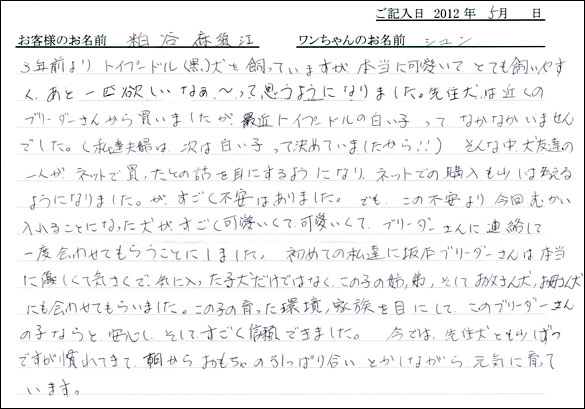 ご記入日 2012年 5月 日
お客様のお名前 粕谷 麻須江 ワンちゃんのお名前 シュン
3年前より トイプードル(黒)犬を飼っていますが 本当に可愛いて とても飼いやす
く、あと一匹欲しいなぁ~って思うようになりました。先住犬は近くの
ブリーダーさんから買いましたが、最近トイプードルの白い子って、なかなかいません
でした。(私達夫婦は、次は白い子って決めていましたから!!) そんな中犬友達の
一人が、ネットで買ったとの話を耳にするようになり、ネットでの購入も少し考える
ようになりました。が、すごく不安はありました。でも、この不安より今回むかい
入れることになった犬がすごく可愛いくて、可愛いくて、ブリーダーさんに連絡して
一度会わせてもらうことにしました。 初めての私達に坂本ブリーダーさんは本当
に優しくて気さくで、気に入った子犬だけではなく、この子の姉、弟、そしてお父さん犬、お母さん犬
にも会わせてもらいました。この子の育った環境、家族を目にして、このブリーダーさん
の子ならと安心し、そして、すごく信頼できました。 今では、先住犬とも少しずつ
ですが慣れてきて、朝からおもちゃの引っぱり合いとかしながら 元気に育って
います。